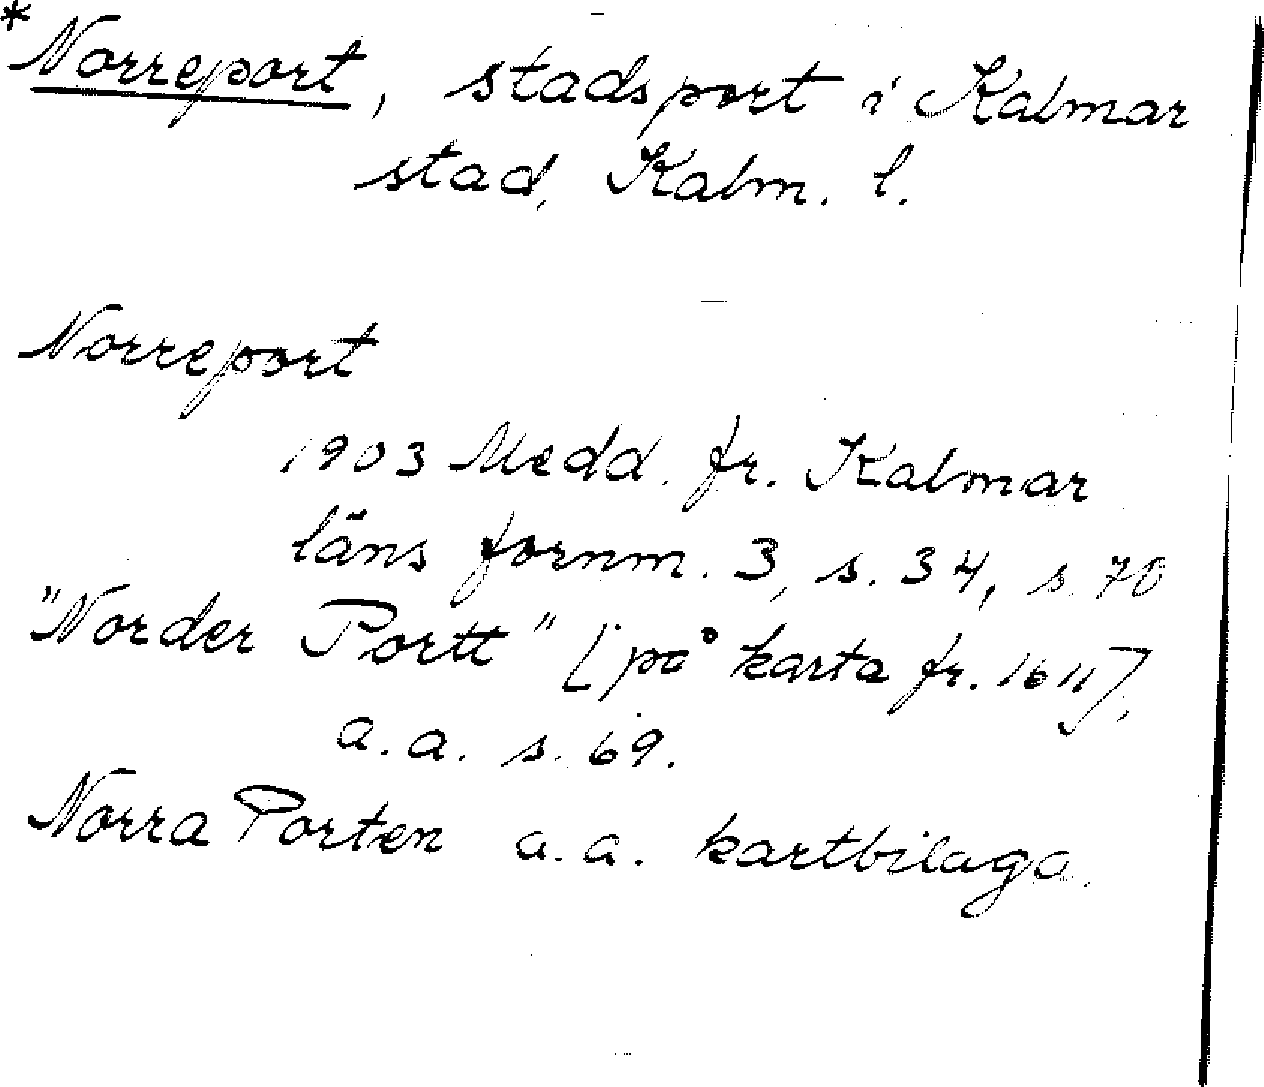 *Norreport, stadsport i Kalmar
stad, Kalm. l.
Norreport
1903 Medd. fr. Kalmar
läns fornm. 3, s. 34, s. 70
"Norder Portt" [på karta fr. 1611],
a.a. s. 69.
Norra Porten a.a. kartbilaga.